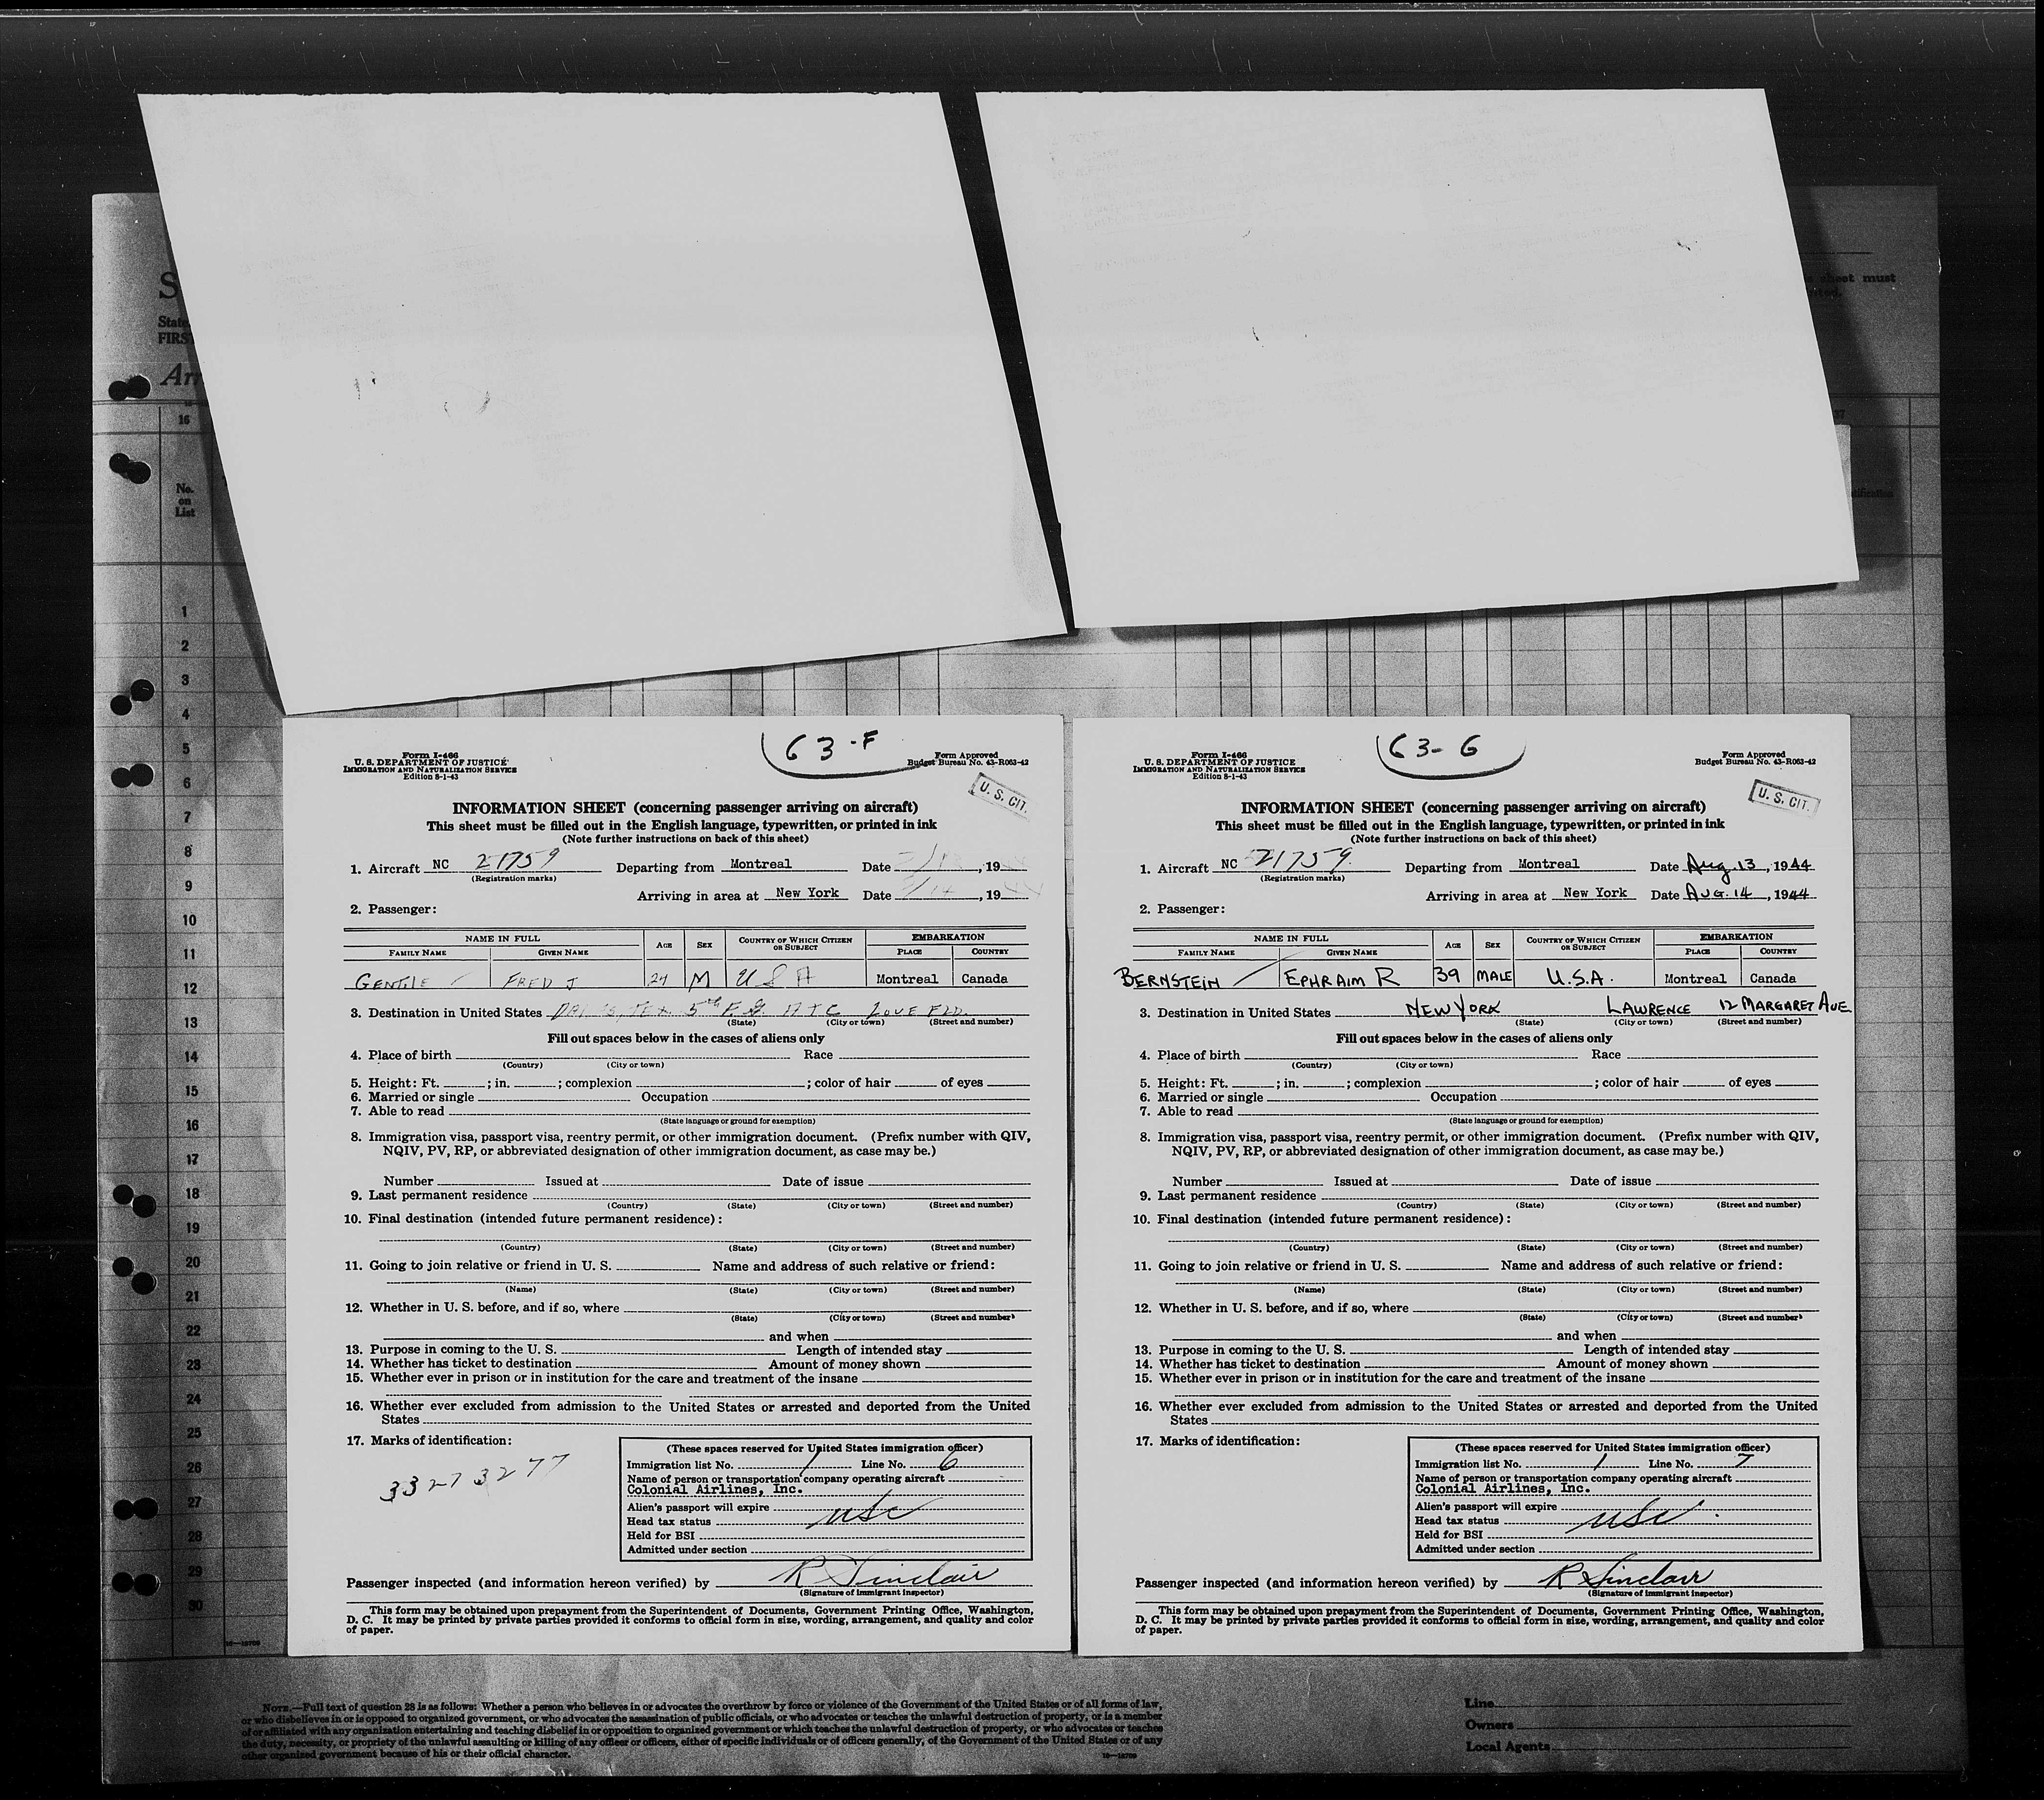 S
State
FIRS
Arr
sheet must
16
37
No.
on
List
1
2
3
4
5
6
7
8
9
10
11
12
13
14
15
16
17
18
19
20
21
22
23
24
25
26
27
28
29
30
63-F
Form I-466
U. S. DEPARTMENT OF JUSTICE
IMMIGRATION AND NATURALIZATION SERVICE
Edition 8-1-43
Form Approved
Budget Bureau No. 43-R063-42
U. S. CIT.
INFORMATION SHEET (concerning passenger arriving on aircraft)
This sheet must be filled out in the English language, typewritten, or printed in ink
(Note further instructions on back of this sheet)
1. Aircraft NC 21759 Departing from Montreal Date , 19
(Registration marks)
Arriving in area at New York Date , 19
2. Passenger:
NAME IN FULL AGE SEX COUNTRY OF WHICH CITIZEN OR SUBJECT EMBARKATION
FAMILY NAME GIVEN NAME PLACE COUNTRY
GENTILE FRED J 24 M USA Montreal Canada
3. Destination in United States TEX 5th F.G. ATC LOVE FLD.
(State) (City or town) (Street and number)
Fill out spaces below in the cases of aliens only
4. Place of birth Race
(Country) (City or town)
5. Height: Ft. ; in. ; complexion ; color of hair of eyes
6. Married or single Occupation
7. Able to read
(State language or ground for exemption)
8. Immigration visa, passport visa, reentry permit, or other immigration document. (Prefix number with QIV,
NQIV, PV, RP, or abbreviated designation of other immigration document, as case may be.)
Number Issued at Date of issue
9. Last permanent residence
(Country) (State) (City or town) (Street and number)
10. Final destination (intended future permanent residence):
(Country) (State) (City or town) (Street and number)
11. Going to join relative or friend in U. S. Name and address of such relative or friend:
(Name) (State) (City or town) (Street and number)
12. Whether in U. S. before, and if so, where
(State) (City or town) (Street and number)
and when
13. Purpose in coming to the U. S. Length of intended stay
14. Whether has ticket to destination Amount of money shown
15. Whether ever in prison or in institution for the care and treatment of the insane
16. Whether ever excluded from admission to the United States or arrested and deported from the United
States
17. Marks of identification:
33273277
(These spaces reserved for United States immigration officer)
Immigration list No. 1 Line No. 6
Name of person or transportation company operating aircraft
Colonial Airlines, Inc.
Alien's passport will expire
Head tax status usc
Held for BSI
Admitted under section
Passenger inspected (and information hereon verified) by R Sinclair
(Signature of Immigrant Inspector)
This form may be obtained upon prepayment from the Superintendent of Documents, Government Printing Office, Washington,
D. C. It may be printed by private parties provided it conforms to official form in size, wording, arrangement, and quality and color
of paper.
63-G
Form I-466
U. S. DEPARTMENT OF JUSTICE
IMMIGRATION AND NATURALIZATION SERVICE
Edition 8-1-43
Form Approved
Budget Bureau No. 43-R063-42
U. S. CIT.
INFORMATION SHEET (concerning passenger arriving on aircraft)
This sheet must be filled out in the English language, typewritten, or printed in ink
(Note further instructions on back of this sheet)
1. Aircraft NC 21759 Departing from Montreal Date Aug. 13, 1944
(Registration marks)
Arriving in area at New York Date AUG. 14, 1944
2. Passenger:
NAME IN FULL AGE SEX COUNTRY OF WHICH CITIZEN OR SUBJECT EMBARKATION
FAMILY NAME GIVEN NAME PLACE COUNTRY
BERNSTEIN EPHRAIM R 39 MALE U.S.A. Montreal Canada
3. Destination in United States NEW YORK LAWRENCE 12 MARGARET AVE
(State) (City or town) (Street and number)
Fill out spaces below in the cases of aliens only
4. Place of birth Race
(Country) (City or town)
5. Height: Ft. ; in. ; complexion ; color of hair of eyes
6. Married or single Occupation
7. Able to read
(State language or ground for exemption)
8. Immigration visa, passport visa, reentry permit, or other immigration document. (Prefix number with QIV,
NQIV, PV, RP, or abbreviated designation of other immigration document, as case may be.)
Number Issued at Date of issue
9. Last permanent residence
(Country) (State) (City or town) (Street and number)
10. Final destination (intended future permanent residence):
(Country) (State) (City or town) (Street and number)
11. Going to join relative or friend in U. S. Name and address of such relative or friend:
(Name) (State) (City or town) (Street and number)
12. Whether in U. S. before, and if so, where
(State) (City or town) (Street and number)
and when
13. Purpose in coming to the U. S. Length of intended stay
14. Whether has ticket to destination Amount of money shown
15. Whether ever in prison or in institution for the care and treatment of the insane
16. Whether ever excluded from admission to the United States or arrested and deported from the United
States
17. Marks of identification:
(These spaces reserved for United States immigration officer)
Immigration list No. 1 Line No. 7
Name of person or transportation company operating aircraft
Colonial Airlines, Inc.
Alien's passport will expire
Head tax status usc
Held for BSI
Admitted under section
Passenger inspected (and information hereon verified) by R Sinclair
(Signature of Immigrant Inspector)
This form may be obtained upon prepayment from the Superintendent of Documents, Government Printing Office, Washington,
D. C. It may be printed by private parties provided it conforms to official form in size, wording, arrangement, and quality and color
of paper.
NOTE.—Full text of question 28 is as follows: Whether a person who believes in or advocates the overthrow by force or violence of the Government of the United States or of all forms of law,
or who disbelieves in or is opposed to organized government, or who advocates the assassination of public officials, or who advocates or teaches the unlawful destruction of property, or is a member
of or affiliated with any organization entertaining and teaching disbelief in or opposition to organized government or which teaches the unlawful destruction of property, or who advocates or teaches
the duty, necessity, or propriety of the unlawful assaulting or killing of any officer or officers, either of specific individuals or of officers generally, of the Government of the United States or of any
other organized government because of his or their official character.
Line
Owners
Local Agents